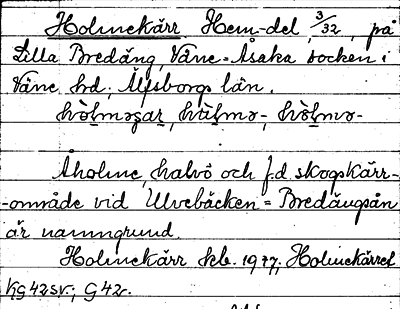 Holmekärr Hem-del, 3/32, på
Lilla Bredäng, Väne-Åsaka socken i
Väne hd, Älfsborgs län.
Åholme, halvö och f.d. skogskärr-
-område vid Ulvebäcken = Bredängsån
är namngrund.
Holmekärr keb. 1977, Holmekärret
KG 42sv; G42.